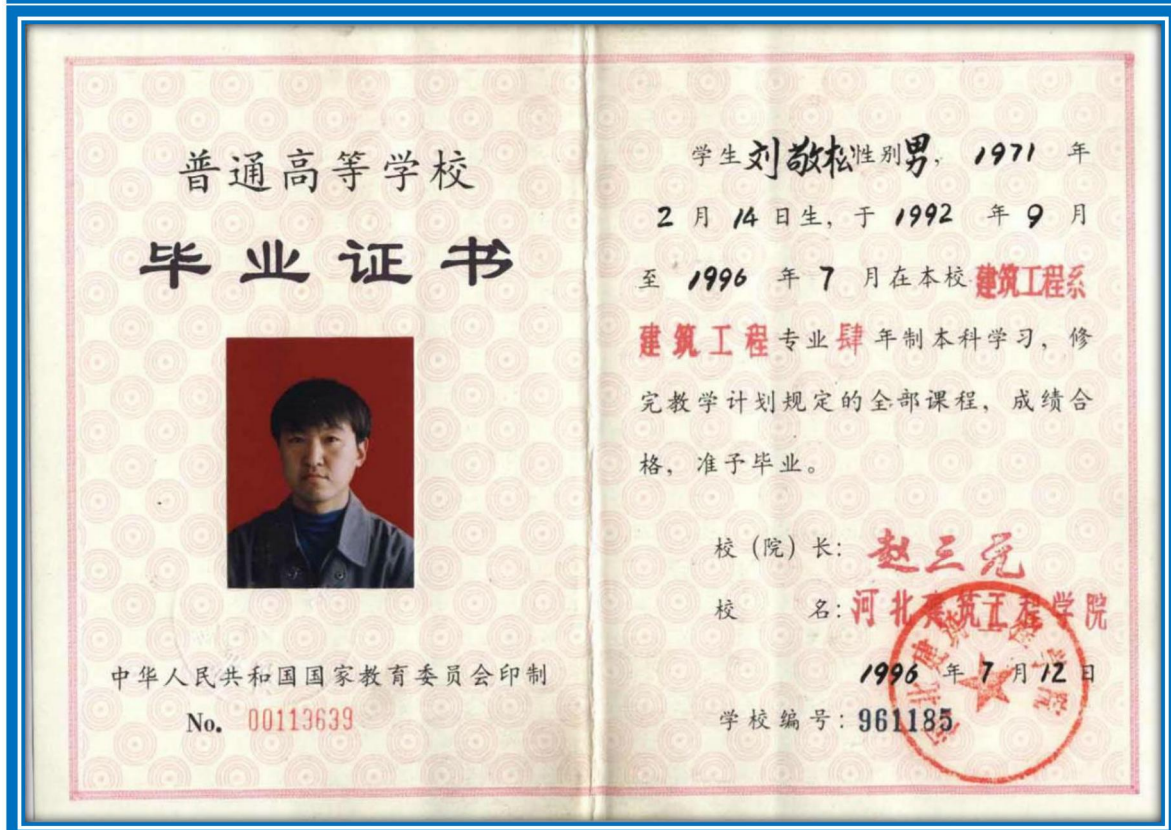 普通高等学校
毕业证书
中华人民共和国国家教育委员会印制
No. 00113639
学生刘敬松性别男，1971 年
2 月 14 日生，于 1992 年 9 月
至 1996 年 7 月在本校 建筑工程系
建筑工程专业肆年制本科学习，修
完教学计划规定的全部课程，成绩合
格，准予毕业。
校（院）长：赵三元
校 名：河北建筑工程学院
1996 年 7 月 12 日
学校编号：961185
河北建筑工程学院